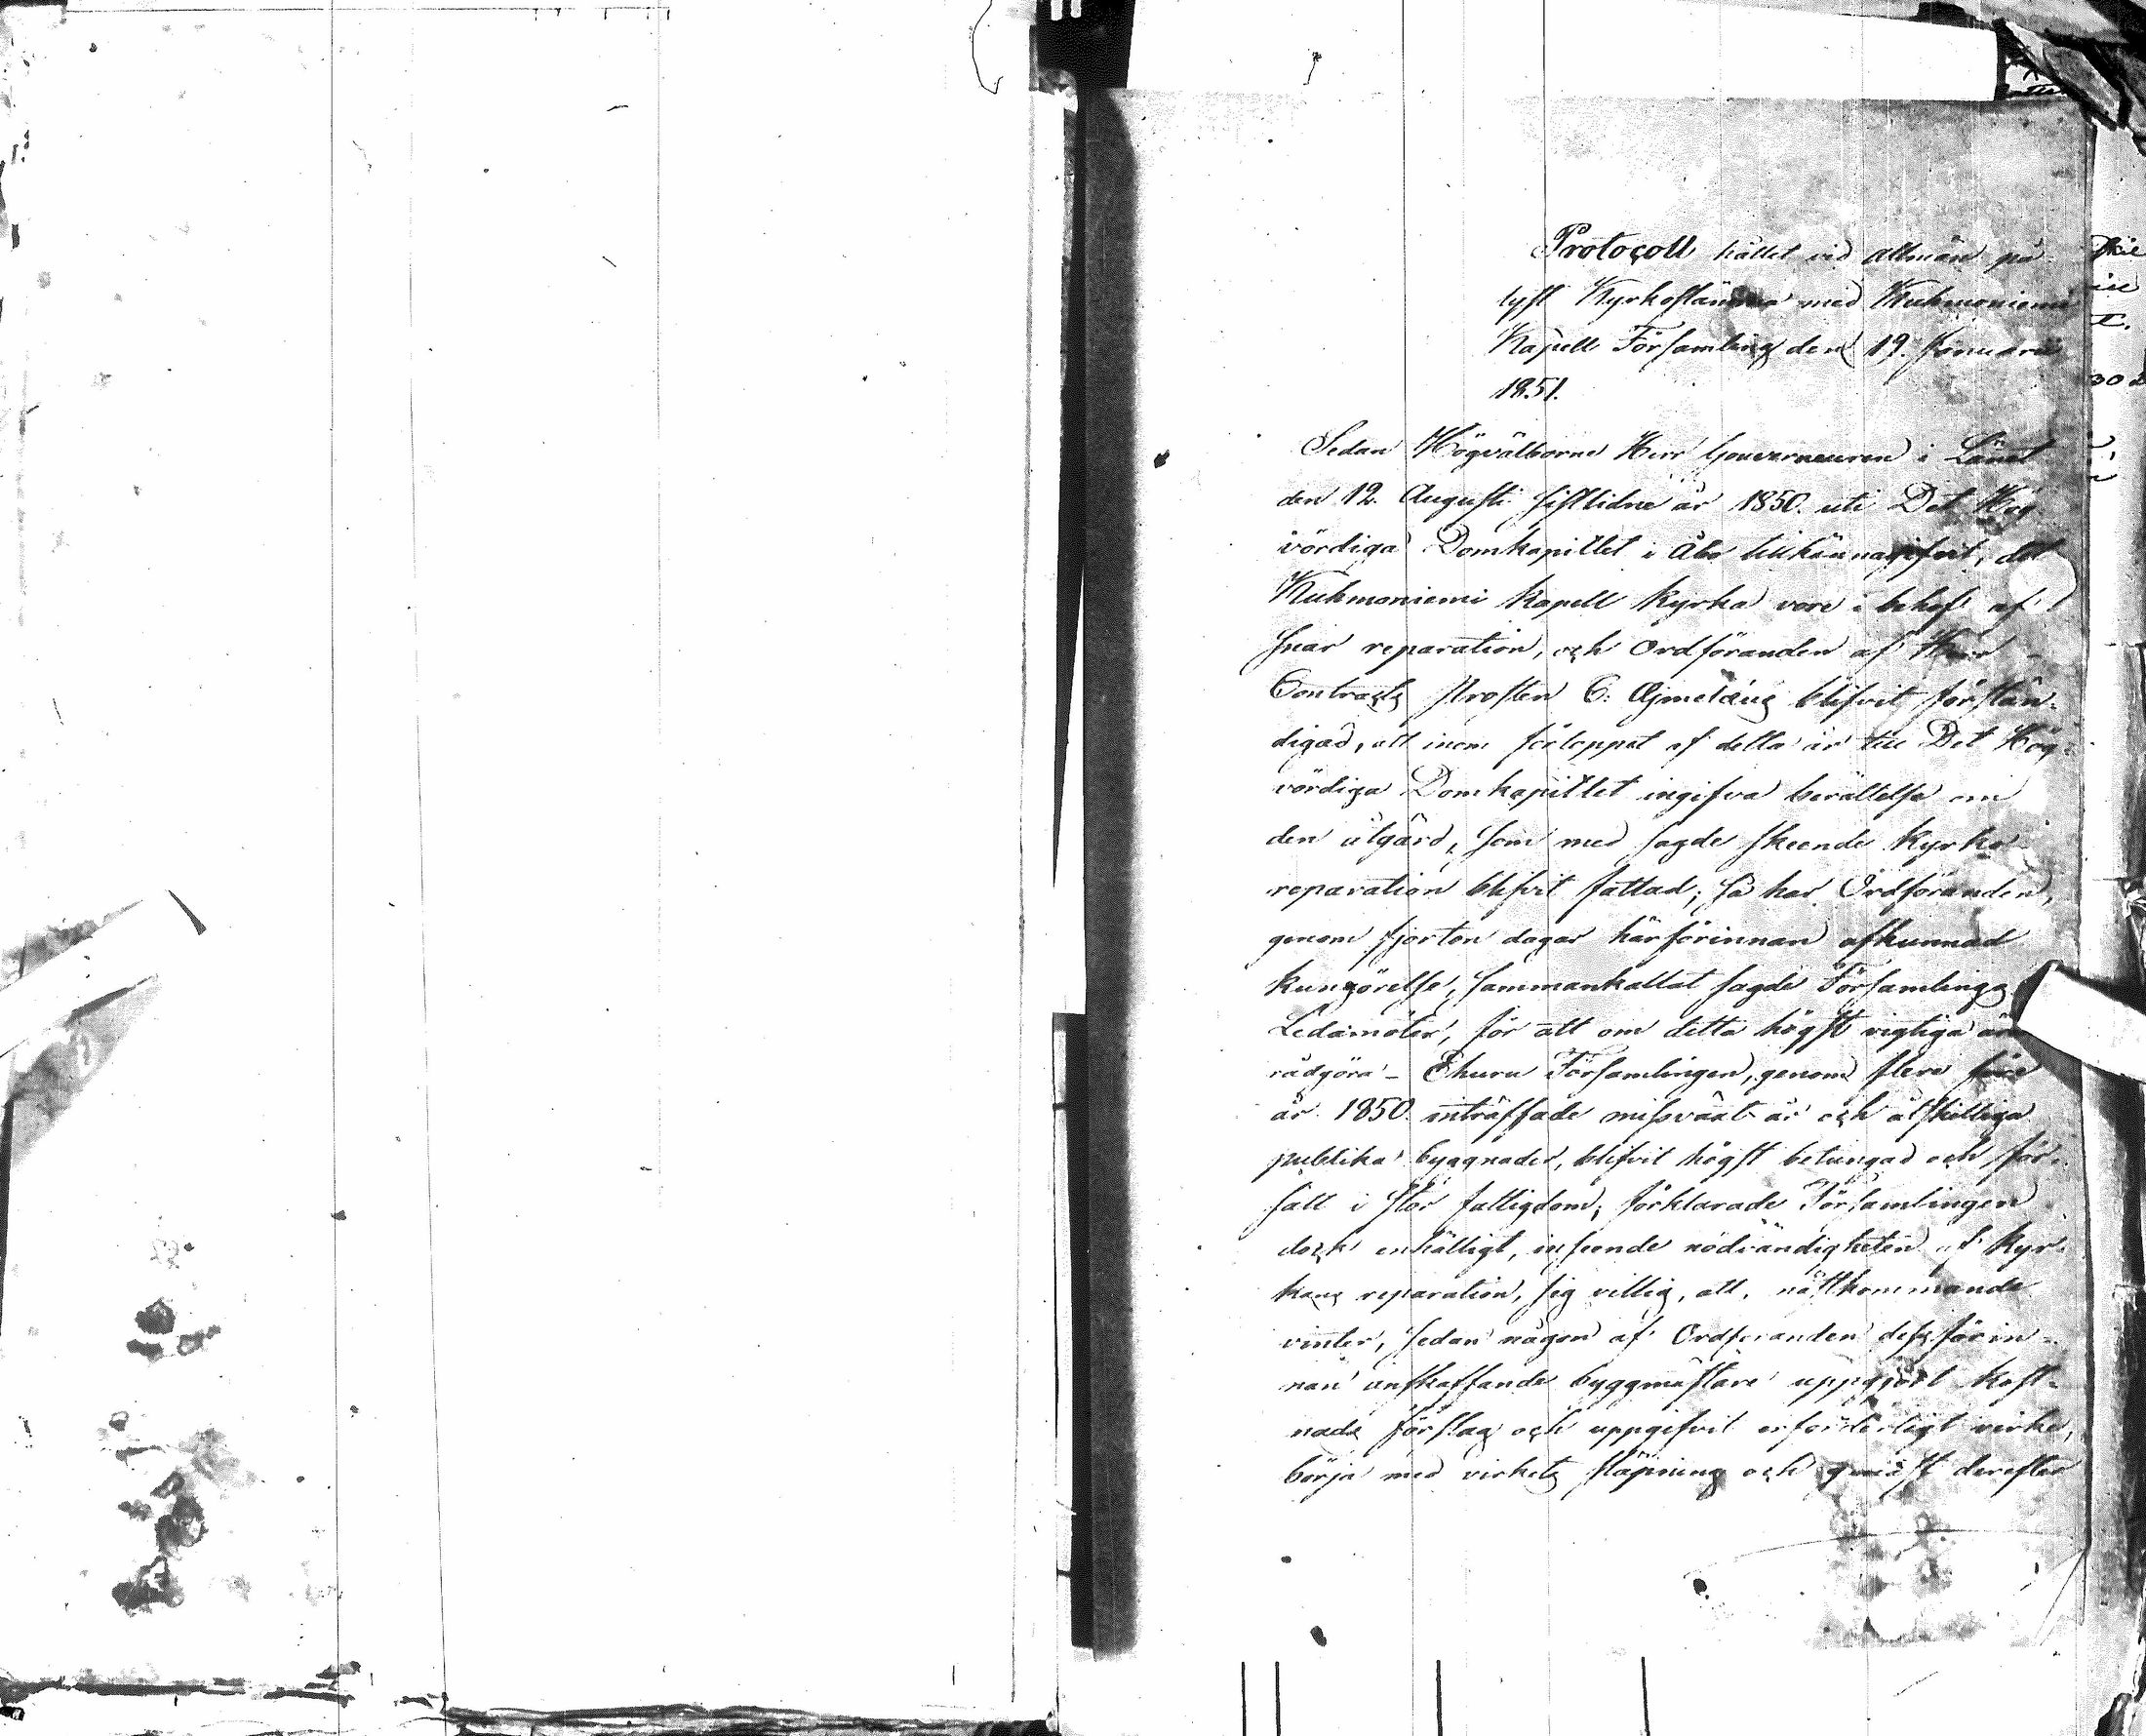 Protocoll hållet vid allmän på-
lyst Kyrkostämma med Kuhmoniemi
Kapell Församling den 19. Januari
1851.
Sedan Högvälborne Herr Gouverneuren i Länet
den 12. Augusti sistlidne år 1850. uti Det Hög-
vördiga Domkapitlet i Åbo tillkännagifvit, det
Kuhmoniemi Kapell Kyrka vore i behof af
snar reparation, och Ordföranden af Herr
Contracts Prosten C: Ajmelæus blifvit förstän-
digad, att inom förloppet af detta år till Det Hög-
vördiga Domkapitlet ingifva berättelse om
den åtgärd, som med sagde skeende Kyrko-
reparation blifvit fattad; så har Ordföranden,
genom fjorton dagar härförinnan afkunnad
kungörelse, sammankallat sagde Församlings
Ledamöter, för att om detta högst vigtiga
rådgöra - Ehuru Församlingen, genom flere före
år 1850. inträffade missväxt år och åtskilliga
publika byggnader, blifvit högst betungad och för-
satt i stor fattigdom; förklarade Församlingen
dock enhälligt, inseende nödvändigheten af Kyr-
kans reparation, sig villig, att, nästkommande
vinter, sedan någon af Ordföranden dessförin-
nan anskaffande byggmästare uppgjort Kost-
nads förslag och uppgifvit erforderligt virke,
börja med virkets släpning och derefter